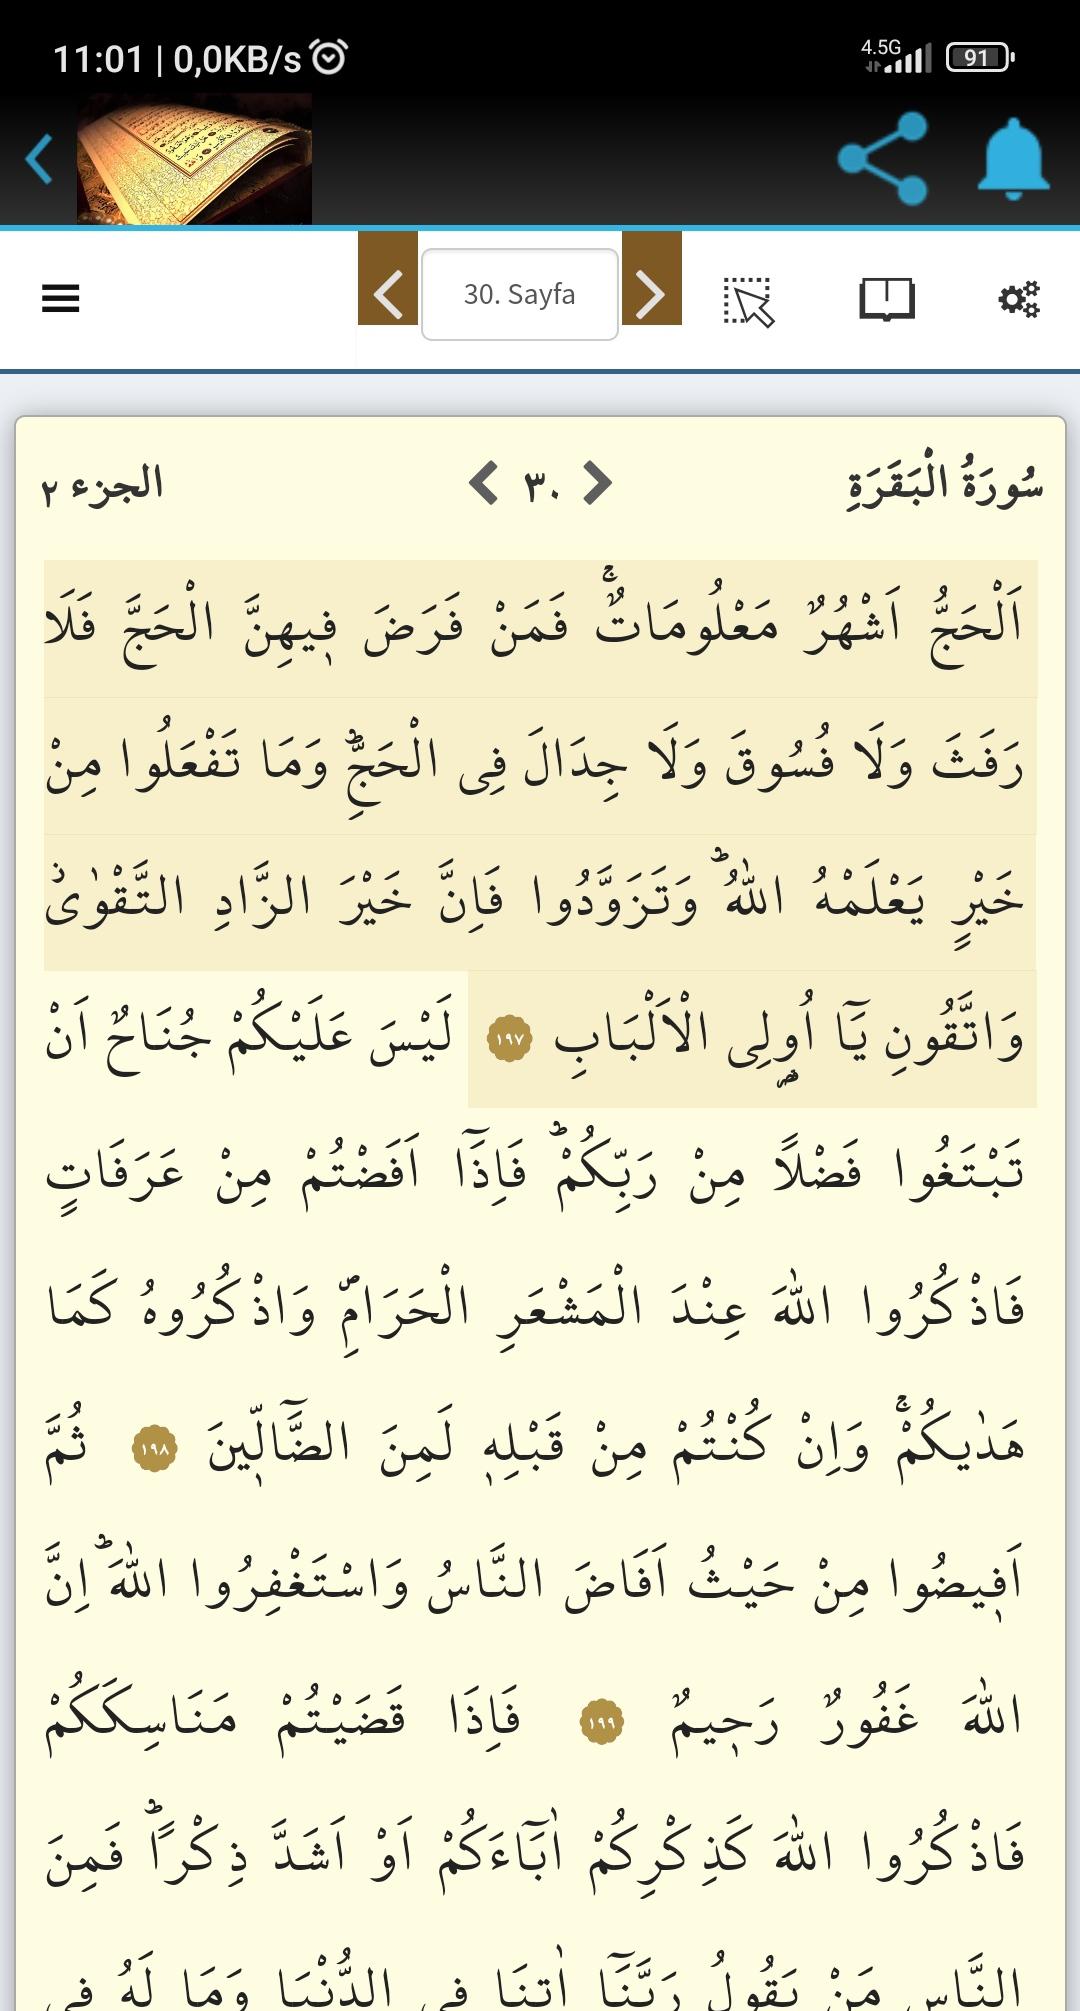 11:01 | 0,0KB/s
4.5G
91
30. Sayfa
سُورَةُ الْبَقَرَةِ
٣٠
الجزء ٢
اَلْحَجُّ اَشْهُرٌ مَعْلُومَاتٌۚ فَمَنْ فَرَضَ ف۪يهِنَّ الْحَجَّ فَلَا
رَفَثَ وَلَا فُسُوقَ وَلَا جِدَالَ فِى الْحَجِّۜ وَمَا تَفْعَلُوا مِنْ
خَيْرٍ يَعْلَمْهُ اللّٰهُۜ وَتَزَوَّدُوا فَاِنَّ خَيْرَ الزَّادِ التَّقْوٰىۘ
وَاتَّقُونِ يَٓا اُو۬لِى الْاَلْبَابِ ﴿١٩٧﴾ لَيْسَ عَلَيْكُمْ جُنَاحٌ اَنْ
تَبْتَغُوا فَضْلًا مِنْ رَبِّكُمْۜ فَاِذَٓا اَفَضْتُمْ مِنْ عَرَفَاتٍ
فَاذْكُرُوا اللّٰهَ عِنْدَ الْمَشْعَرِ الْحَرَامِۖ وَاذْكُرُوهُ كَمَا
هَدٰيكُمْۚ وَاِنْ كُنْتُمْ مِنْ قَبْلِه۪ لَمِنَ الضَّٓالّ۪ينَ ﴿١٩٨﴾ ثُمَّ
اَف۪يضُوا مِنْ حَيْثُ اَفَاضَ النَّاسُ وَاسْتَغْفِرُوا اللّٰهَۜ اِنَّ
اللّٰهَ غَفُورٌ رَح۪يمٌ ﴿١٩٩﴾ فَاِذَا قَضَيْتُمْ مَنَاسِكَكُمْ
فَاذْكُرُوا اللّٰهَ كَذِكْرِكُمْ اٰبَٓاءَكُمْ اَوْ اَشَدَّ ذِكْرًاۜ فَمِنَ
النَّاسِ مَنْ يَقُولُ رَبَّنَٓا اٰتِنَا فِى الدُّنْيَا وَمَا لَهُ فِى